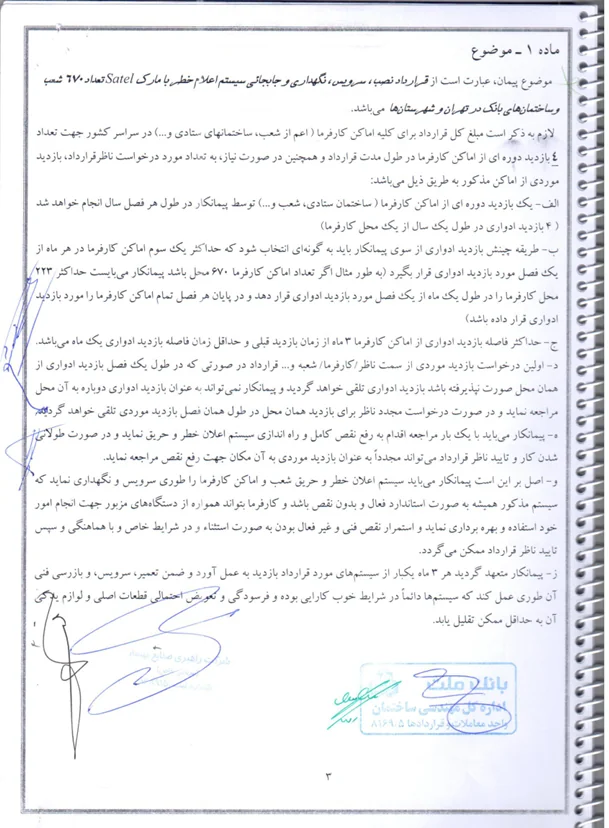 ماده ۱ ـ موضوع
موضوع پیمان، عبارت است از قرارداد نصب، سرویس، نگهداری و جابجائی سیستم اعلام خطر با مارک Satel تعداد ۶۷۰ شعب
و ساختمان‌های بانک در تهران و شهرستان‌ها می‌باشد.
لازم به ذکر است مبلغ کل قرارداد برای کلیه اماکن کارفرما ( اعم از شعب، ساختمانهای ستادی و...) در سراسر کشور جهت تعداد
٤ بازدید دوره ای از اماکن کارفرما در طول مدت قرارداد و همچنین در صورت نیاز، به تعداد مورد درخواست ناظرقرارداد، بازدید
موردی از اماکن مذکور به طریق ذیل می‌باشد:
الف- یک بازدید دوره ای از اماکن کارفرما ( ساختمان ستادی، شعب و...) توسط پیمانکار در طول هر فصل سال انجام خواهد شد
( ۴ بازدید ادواری در طول یک سال از یک محل کارفرما)
ب- طریقه چینش بازدید ادواری از سوی پیمانکار باید به گونه‌ای انتخاب شود که حداکثر یک سوم اماکن کارفرما در هر ماه از
یک فصل مورد بازدید ادواری قرار بگیرد (به طور مثال اگر تعداد اماکن کارفرما ۶۷۰ محل باشد پیمانکار می‌بایست حداکثر ۲۲۳
محل کارفرما را در طول یک ماه از یک فصل مورد بازدید ادواری قرار دهد و در پایان هر فصل تمام اماکن کارفرما را مورد بازدید
ادواری قرار داده باشد)
ج- حداکثر فاصله بازدید ادواری از اماکن کارفرما ۳ ماه از زمان بازدید قبلی و حداقل زمان فاصله بازدید ادواری یک ماه می‌باشد.
د- اولین درخواست بازدید موردی از سمت ناظر/کارفرما/ شعبه و... قرارداد در صورتی که در طول یک فصل بازدید ادواری از
همان محل صورت نپذیرفته باشد بازدید ادواری تلقی خواهد گردید و پیمانکار نمی‌تواند به عنوان بازدید ادواری دوباره به آن محل
مراجعه نماید و در صورت درخواست مجدد ناظر برای بازدید همان محل در طول همان فصل بازدید موردی تلقی خواهد گردید.
ه- پیمانکار می‌باید با یک بار مراجعه اقدام به رفع نقص کامل و راه اندازی سیستم اعلان خطر و حریق نماید و در صورت طولانی
شدن کار و تایید ناظر قرارداد می‌تواند مجدداً به عنوان بازدید موردی به آن مکان جهت رفع نقص مراجعه نماید.
و- اصل بر این است پیمانکار می‌باید سیستم اعلان خطر و حریق شعب و اماکن کارفرما را طوری سرویس و نگهداری نماید که
سیستم مذکور همیشه به صورت استاندارد فعال و بدون نقص باشد و کارفرما بتواند همواره از دستگاه‌های مزبور جهت انجام امور
خود استفاده و بهره برداری نماید و استمرار نقص فنی و غیر فعال بودن به صورت استثناء و در شرایط خاص و با هماهنگی و سپس
تایید ناظر قرارداد ممکن می‌گردد.
ز- پیمانکار متعهد گردید هر ۳ ماه یکبار از سیستم‌های مورد قرارداد بازدید به عمل آورد و ضمن تعمیر، سرویس، و بازرسی فنی
آن طوری عمل کند که سیستم‌ها دائماً در شرایط خوب کارایی بوده و فرسودگی و تعویض احتمالی قطعات اصلی و لوازم یدکی
آن به حداقل ممکن تقلیل یابد.
شرکت راهبری صنایع
بانک ملت
اداره کل مهندسی ساختمان
واحد معاملات و قراردادها ۸۱۶۹۰۵
۳